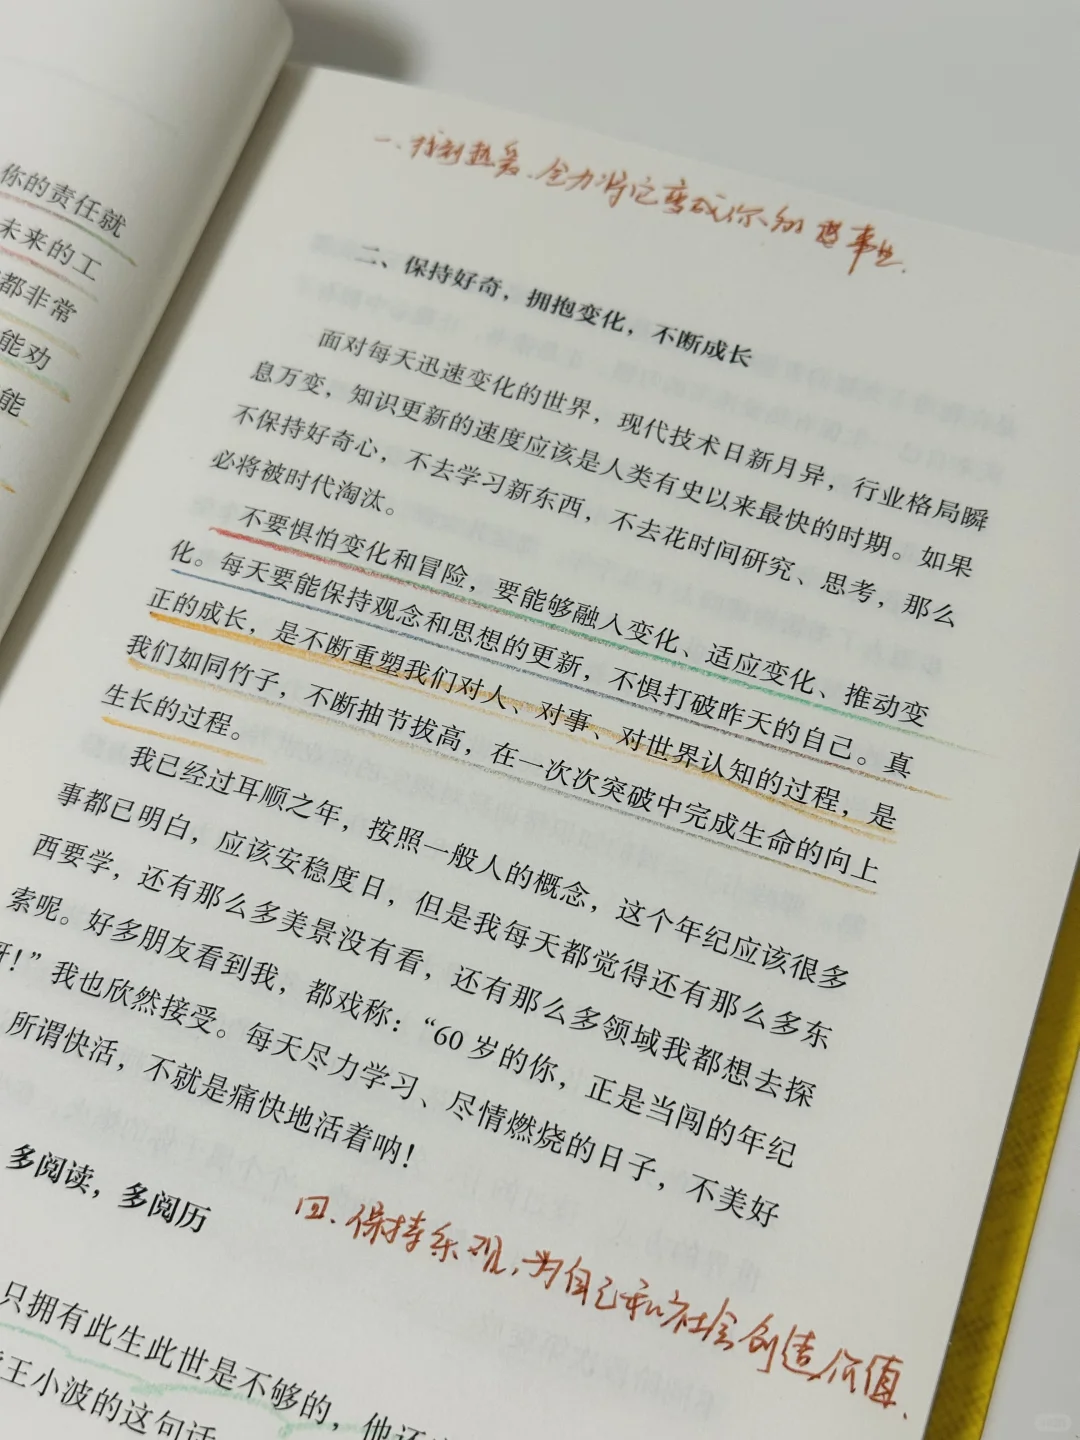 你的责任就
未来的工
都非常
能劝
能
一、找到热爱，全力将它变成你的事业．
二、保持好奇，拥抱变化，不断成长
面对每天迅速变化的世界，现代技术日新月异，行业格局瞬
息万变，知识更新的速度应该是人类有史以来最快的时期。如果
不保持好奇心，不去学习新东西，不去花时间研究、思考，那么
必将被时代淘汰。
不要惧怕变化和冒险，要能够融入变化、适应变化、推动变
化。每天要能保持观念和思想的更新，不惧打破昨天的自己。真
正的成长，是不断重塑我们对人、对事、对世界认知的过程，是
我们如同竹子，不断抽节拔高，在一次次突破中完成生命的向上
生长的过程。
我已经过耳顺之年，按照一般人的概念，这个年纪应该很多
事都已明白，应该安稳度日，但是我每天都觉得还有那么多东
西要学，还有那么多美景没有看，还有那么多领域我都想去探
索呢。好多朋友看到我，都戏称：“60 岁的你，正是当闯的年纪
呀！”我也欣然接受。每天尽力学习、尽情燃烧的日子，不美好
所谓快活，不就是痛快地活着呐！
多阅读，多阅历
四、保持乐观，为自己和社会创造价值．
只拥有此生此世是不够的，他还
王小波的这句话